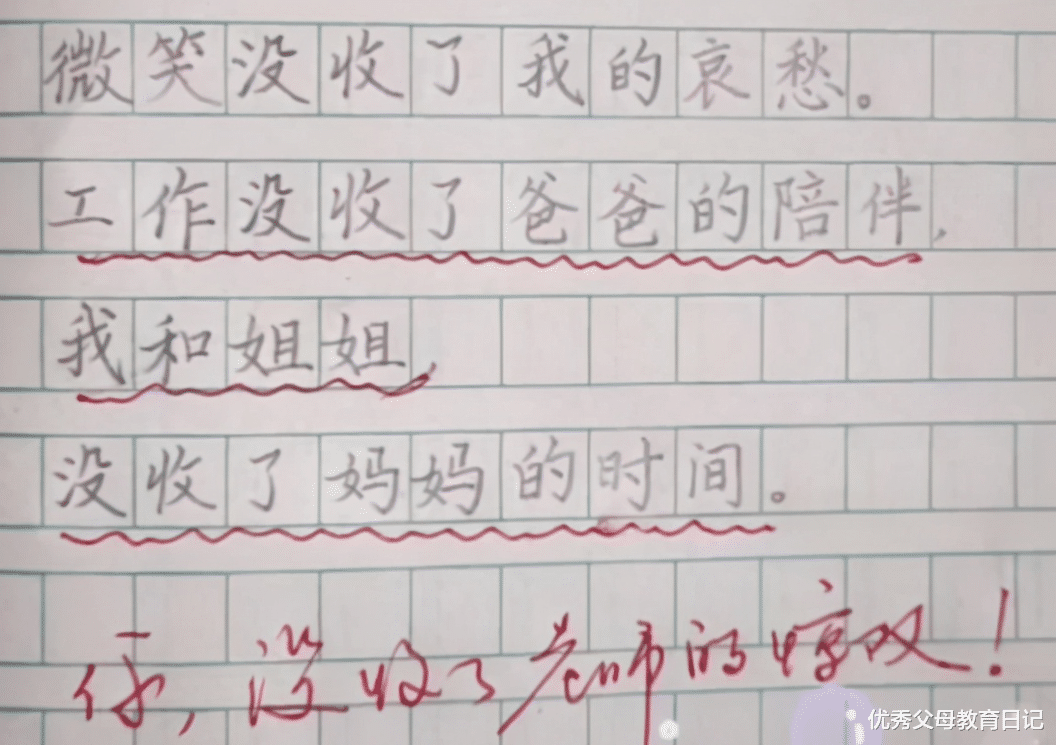 微笑没收了我的哀愁。
工作没收了爸爸的陪伴,
我和姐姐,
没收了妈妈的时间。
你,没收了老师的惊叹!
优秀父母教育日记